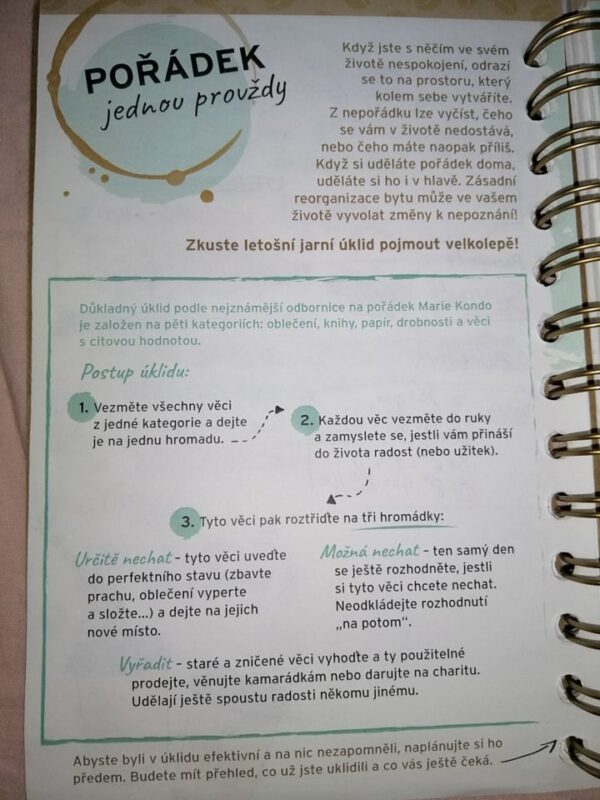 POŘÁDEK
jednou provždy
Když jste s něčím ve svém
životě nespokojení, odrazí
se to na prostoru, který
kolem sebe vytváříte.
Z nepořádku lze vyčíst, čeho
se vám v životě nedostává,
nebo čeho máte naopak příliš.
Když si uděláte pořádek doma,
uděláte si ho i v hlavě. Zásadní
reorganizace bytu může ve vašem
životě vyvolat změny k nepoznání!
Zkuste letošní jarní úklid pojmout velkolepě!
Důkladný úklid podle nejznámější odbornice na pořádek Marie Kondo
je založen na pěti kategoriích: oblečení, knihy, papír, drobnosti a věci
s citovou hodnotou.
Postup úklidu:
1. Vezměte všechny věci
z jedné kategorie a dejte
je na jednu hromadu.
2. Každou věc vezměte do ruky
a zamyslete se, jestli vám přináší
do života radost (nebo užitek).
3. Tyto věci pak roztřiďte na tři hromádky:
Určitě nechat - tyto věci uveďte
do perfektního stavu (zbavte
prachu, oblečení vyperte
a složte...) a dejte na jejich
nové místo.
Možná nechat - ten samý den
se ještě rozhodněte, jestli
si tyto věci chcete nechat.
Neodkládejte rozhodnutí
„na potom“.
Vyřadit - staré a zničené věci vyhoďte a ty použitelné
prodejte, věnujte kamarádkám nebo darujte na charitu.
Udělají ještě spoustu radosti někomu jinému.
Abyste byli v úklidu efektivní a na nic nezapomněli, naplánujte si ho
předem. Budete mít přehled, co už jste uklidili a co vás ještě čeká.